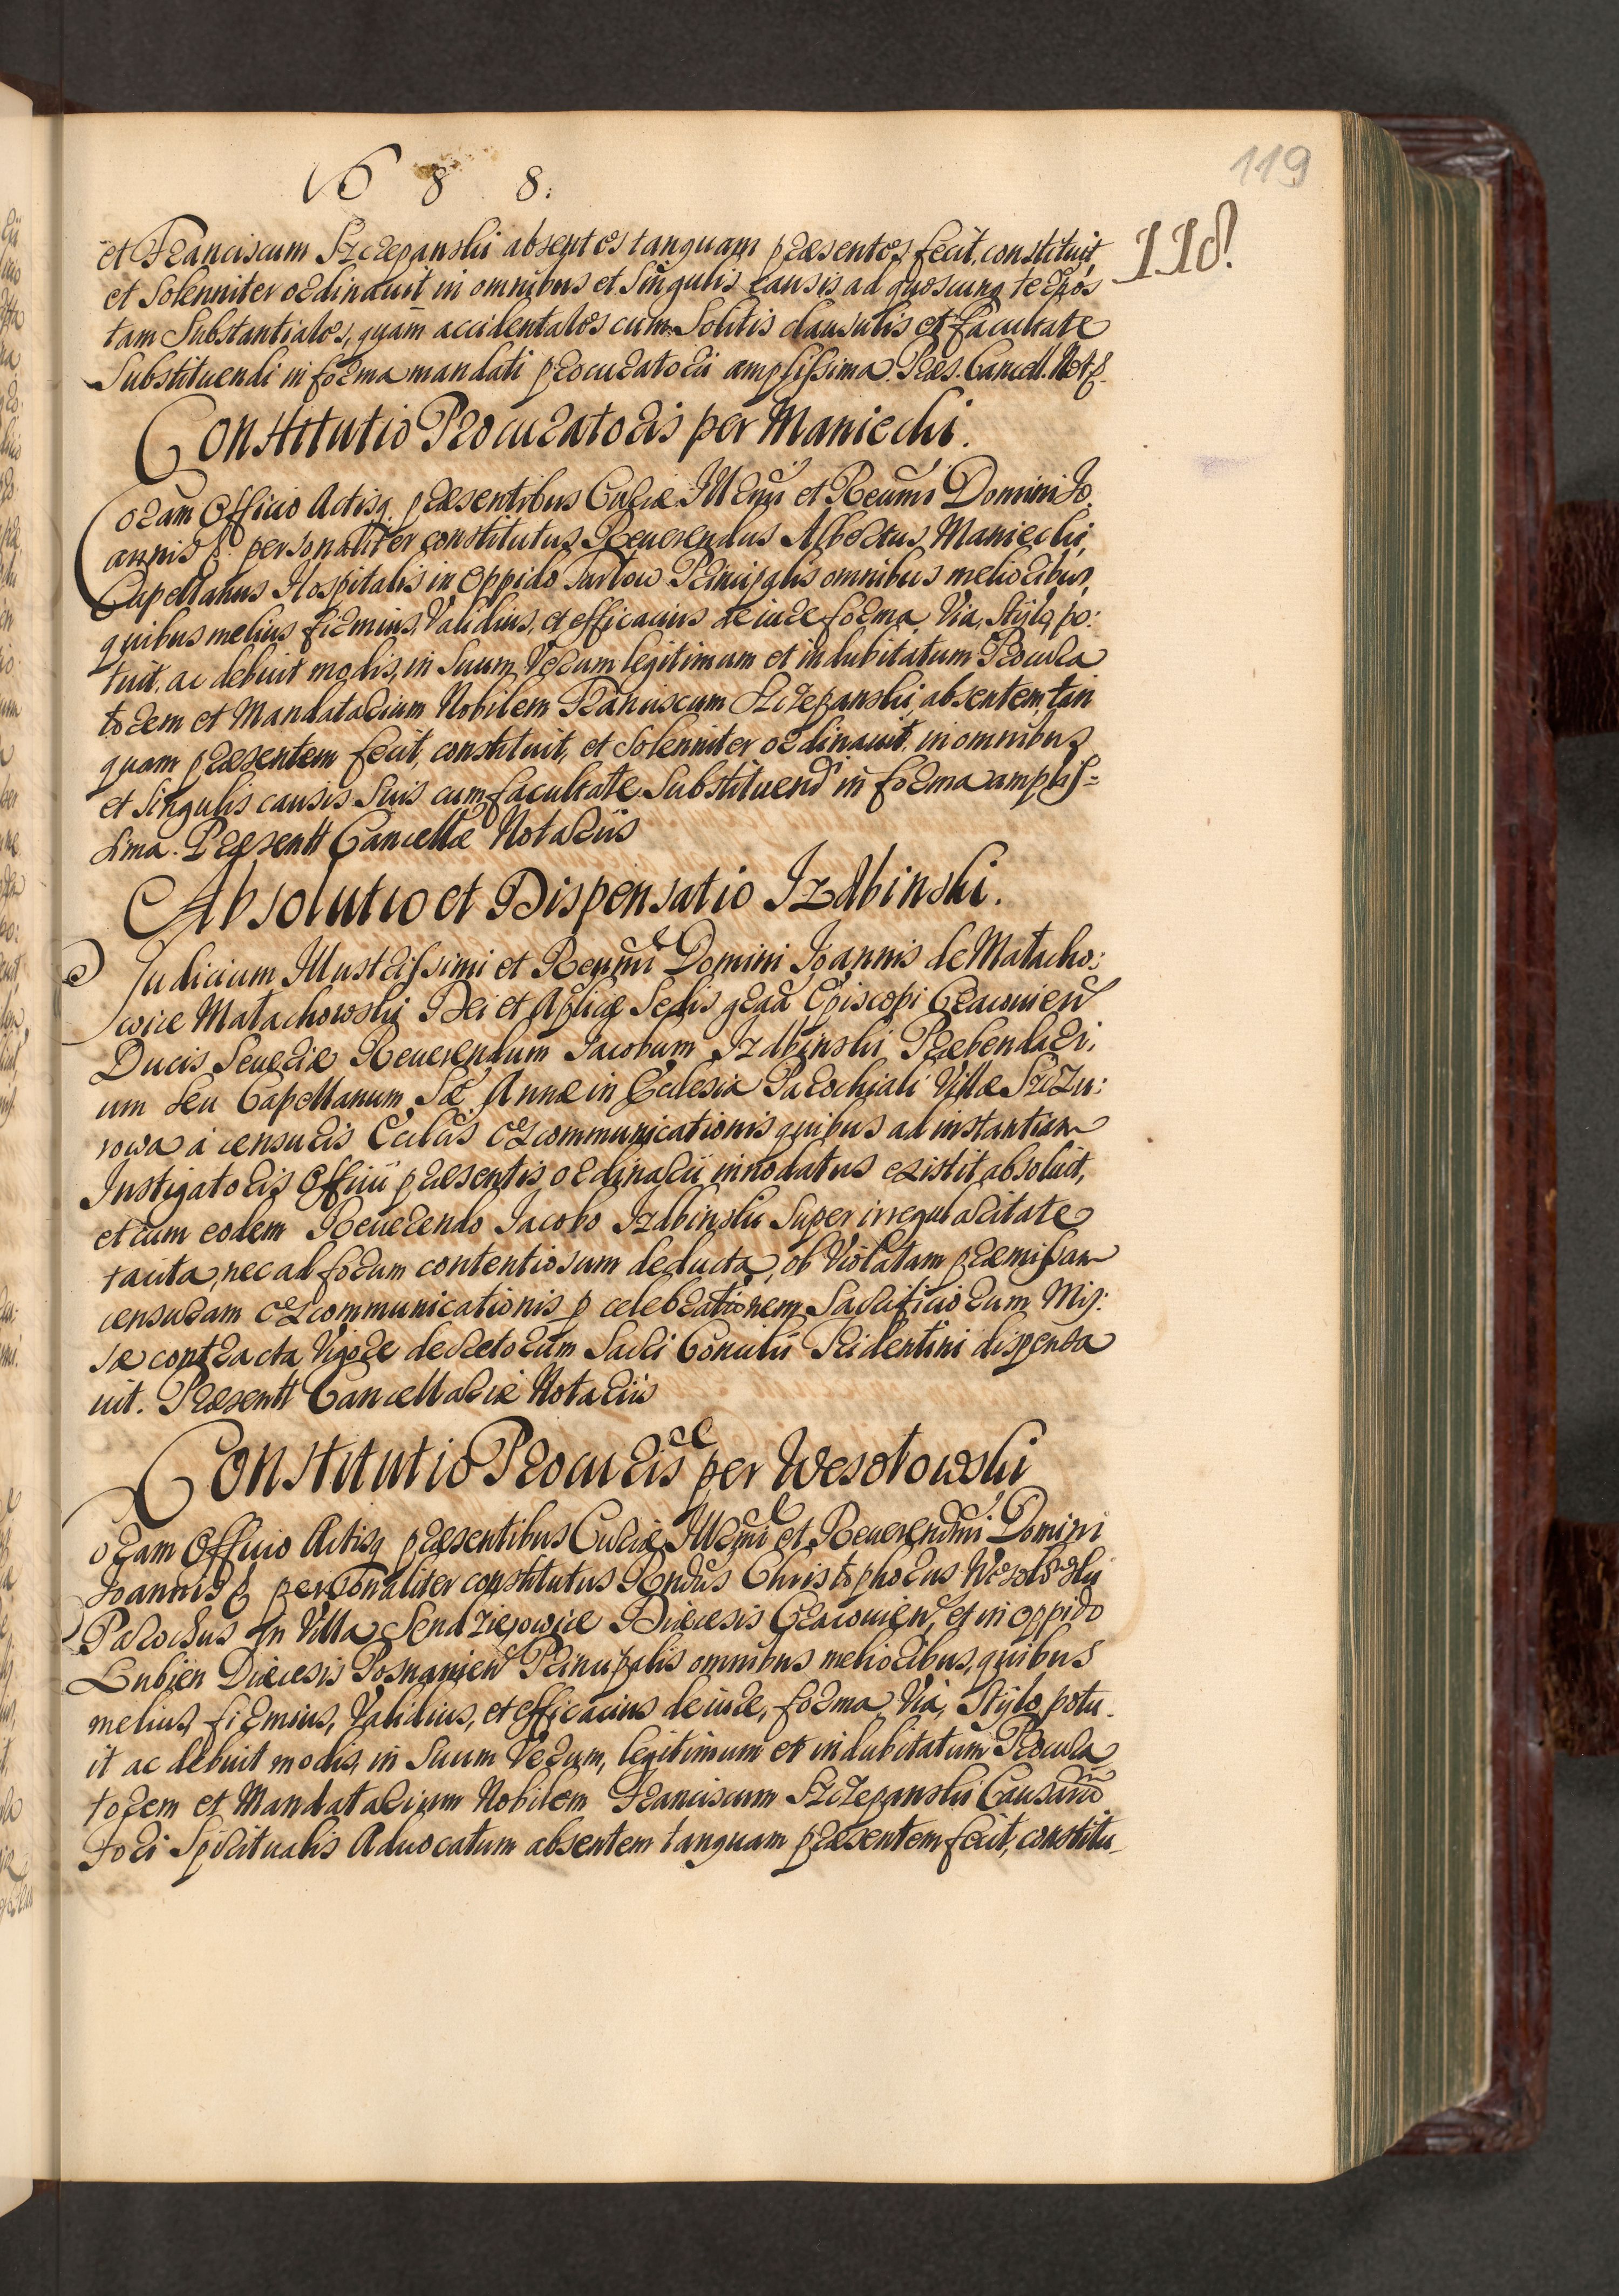 1688.
119
118.
et Franciscum Szczepanski absentes tanquam præsentes fecit, constituit,
et Solenniter ordinauit in omnibus et Singulis causis ad quoscunq terminos
tam Substantiales, quam accidentales cum Solitis clausulis et facultate
Substituendi in forma mandati procuratorii amplissima. Præs. Cancell. Not.
Constitutio Procuratoris per Maniecki.
Coram Officio Actisq. præsentibus Curiæ Illrmi et Reumi Domini Jo
annis personaliter constitutus Reuerendus Albertus Maniecki,
Capellanus Hospitalis in Oppido Tarlow Principalis omnibus melioribus,
quibus melius firmius, Validius, et efficacius de iure forma, Via, Stylo, po:
tuit, ac debuit modis, in Suum Verum legitimum et indubitatum Procura
torem et Mandatarium Nobilem Franciscum Szczepanski, absentem tan
quam præsentem fecit, constituit, et Solenniter ordinauit, in omnibus
et Singulis causis Suis cum facultate Substituendi in forma amplis=
sima. Præsentt Cancellæ Notariis
Absolutio et Dispensatio Izdbinski.
Judicium Illustrissimi et Reumi Domini Joannis de Małacho:
wice Małachowski Dei et Aplicæ Sedis gratia Episcopi Cracouien
Ducis Seueriæ Reuerendum Jacobum Izdbinski Præbendari,
um seu Capellanum Stæ Annæ in Ecclesia Parochiali Villæ Szczu:
rowa à censuris Ecclcis excommunicationis quibus ad instantiam
Instigatoris Officii præsentis ordinarii innodatus existit absoluit,
et cum eodem Reuerendo Jacobo Izdbinski Super irregularitate
tacita, nec ad forum contentiosum deducta, ob Violatam præmissam
censuram excommunicationis p celebrationem Sacrificiorum Mis:
sæ contracta, Vigore decretorum Sacri Concilii Tridentini dispensa
uit. Præsentt Cancellariæ Notariis
Constitutio Procuris per Wesołowski
Coram Officio Actisq præsentibus Curiæ Illrmi et Reuerendmi Domini
Joannis personaliter constitutus Rndus Christophorus Wesołowski
Parochus In Villa Sendziejowice Diæcesis Cracouien, et in oppido
Lubien Diæcesis Posnanien Principalis omnibus melioribus, quibus
melius, firmius, Validius, et efficacius de iure, forma, Via, Stylo, potu-
it ac debuit modis, in Suum Verum, legitimum et indubitatum Procura
torem et Mandatarium Nobilem Franciscum Szczepanski Causarum
Fori Spiritualis Aduocatum absentem tanquam præsentem fecit, constitu-